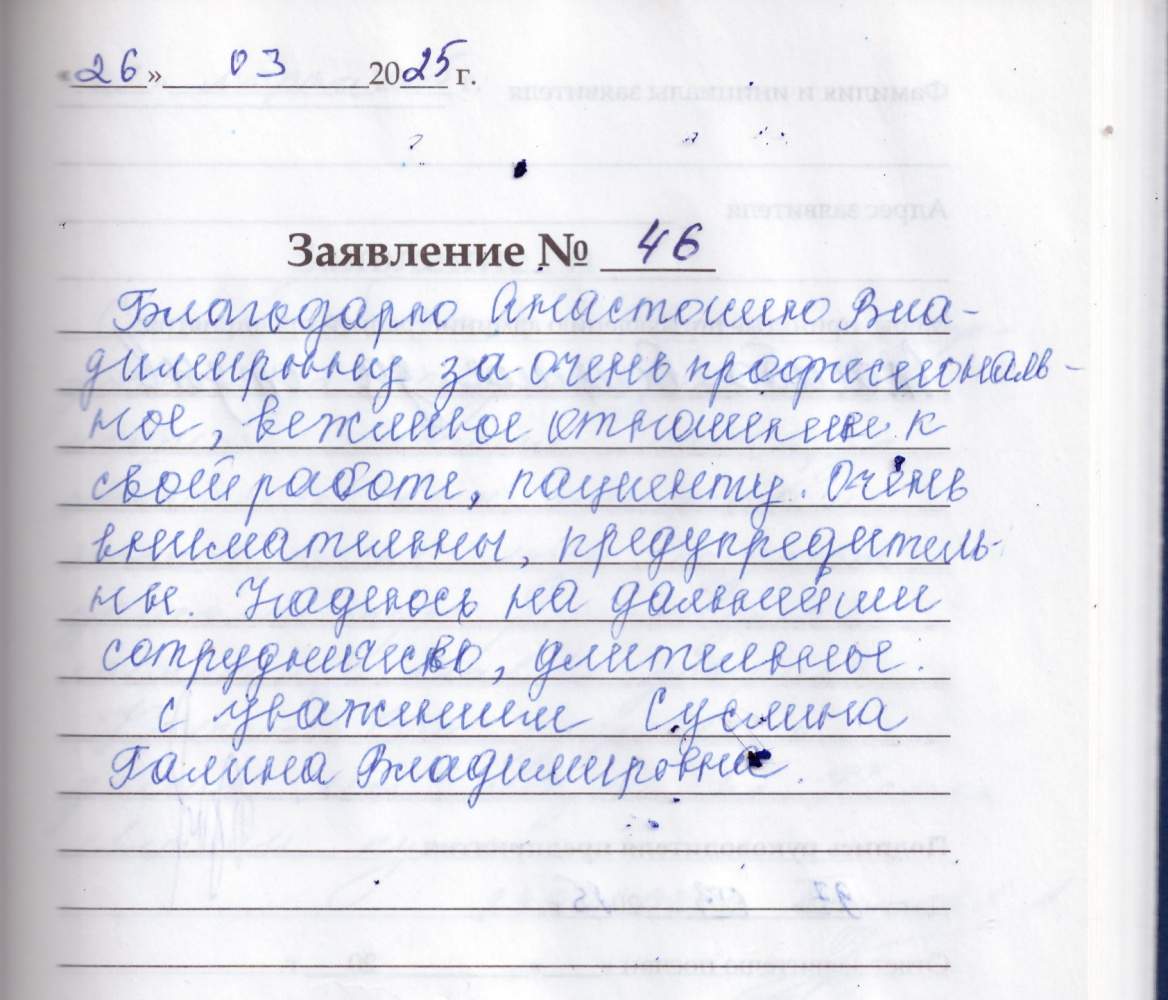 «26» 03 2025 г.
Заявление № 46
Благодарю Анастасию Вла-
димировну за очень профессиональ-
ное, вежливое отношение к
своей работе, пациенту. Очень
внимательны, предупредитель-
ны. Надеюсь на дальнейшем
сотрудничество, длительное.
С уважением Суслина
Галина Владимировна.